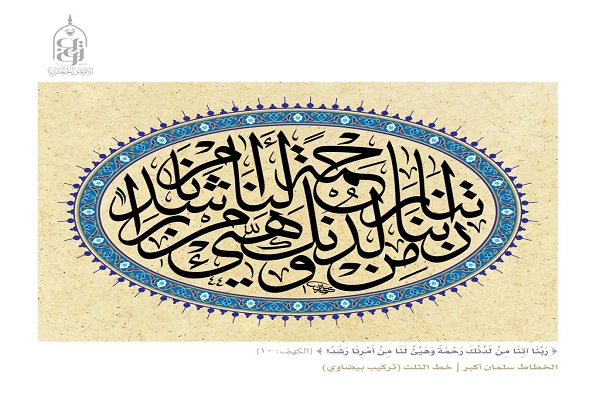 الأوقاف الجعفرية
ربنا آتنا من لدنك رحمة وهيئ لنا من أمرنا رشدا
﴿ رَبَّنَا آتِنَا مِنْ لَدُنْكَ رَحْمَةً وَهَيِّئْ لَنَا مِنْ أَمْرِنَا رَشَدًا ﴾ [الكهف: ١٠]
الخطاط سلمان أكبر | خط الثلث (تركيب بيضاوي)